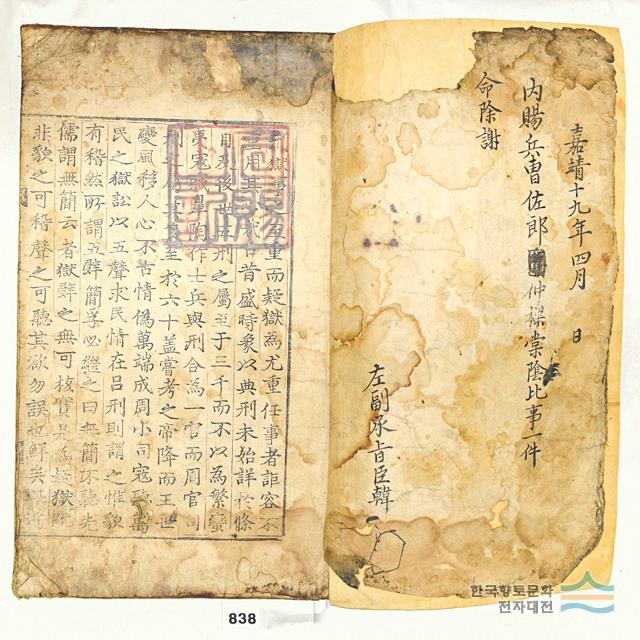 嘉靖十九年四月 日
內賜兵曹佐郎 仲操棠陰比事一件
命除謝
左副承旨臣韓
獄事之 重而疑獄為尤重任事者詎容不
昔盛時象以典刑未始詳於條
自 後世 刑之屬至于三千而不以為繁蠻
夷寇 作士兵與刑合為一官而周官司
至於六十盖嘗考之帝降而王世
變風移人心不古情偽萬端成周小司寇聽萬
民之獄訟以五聲求民情在呂刑則謂之惟貌
有稽然所謂五辭簡孚必繼之曰無簡不聽先
儒謂無簡云者獄辭之無可核實是為疑獄
非貌之可稽聲之可聽其欲勿誤也鮮矣 近
838
한국향토문화
전자대전